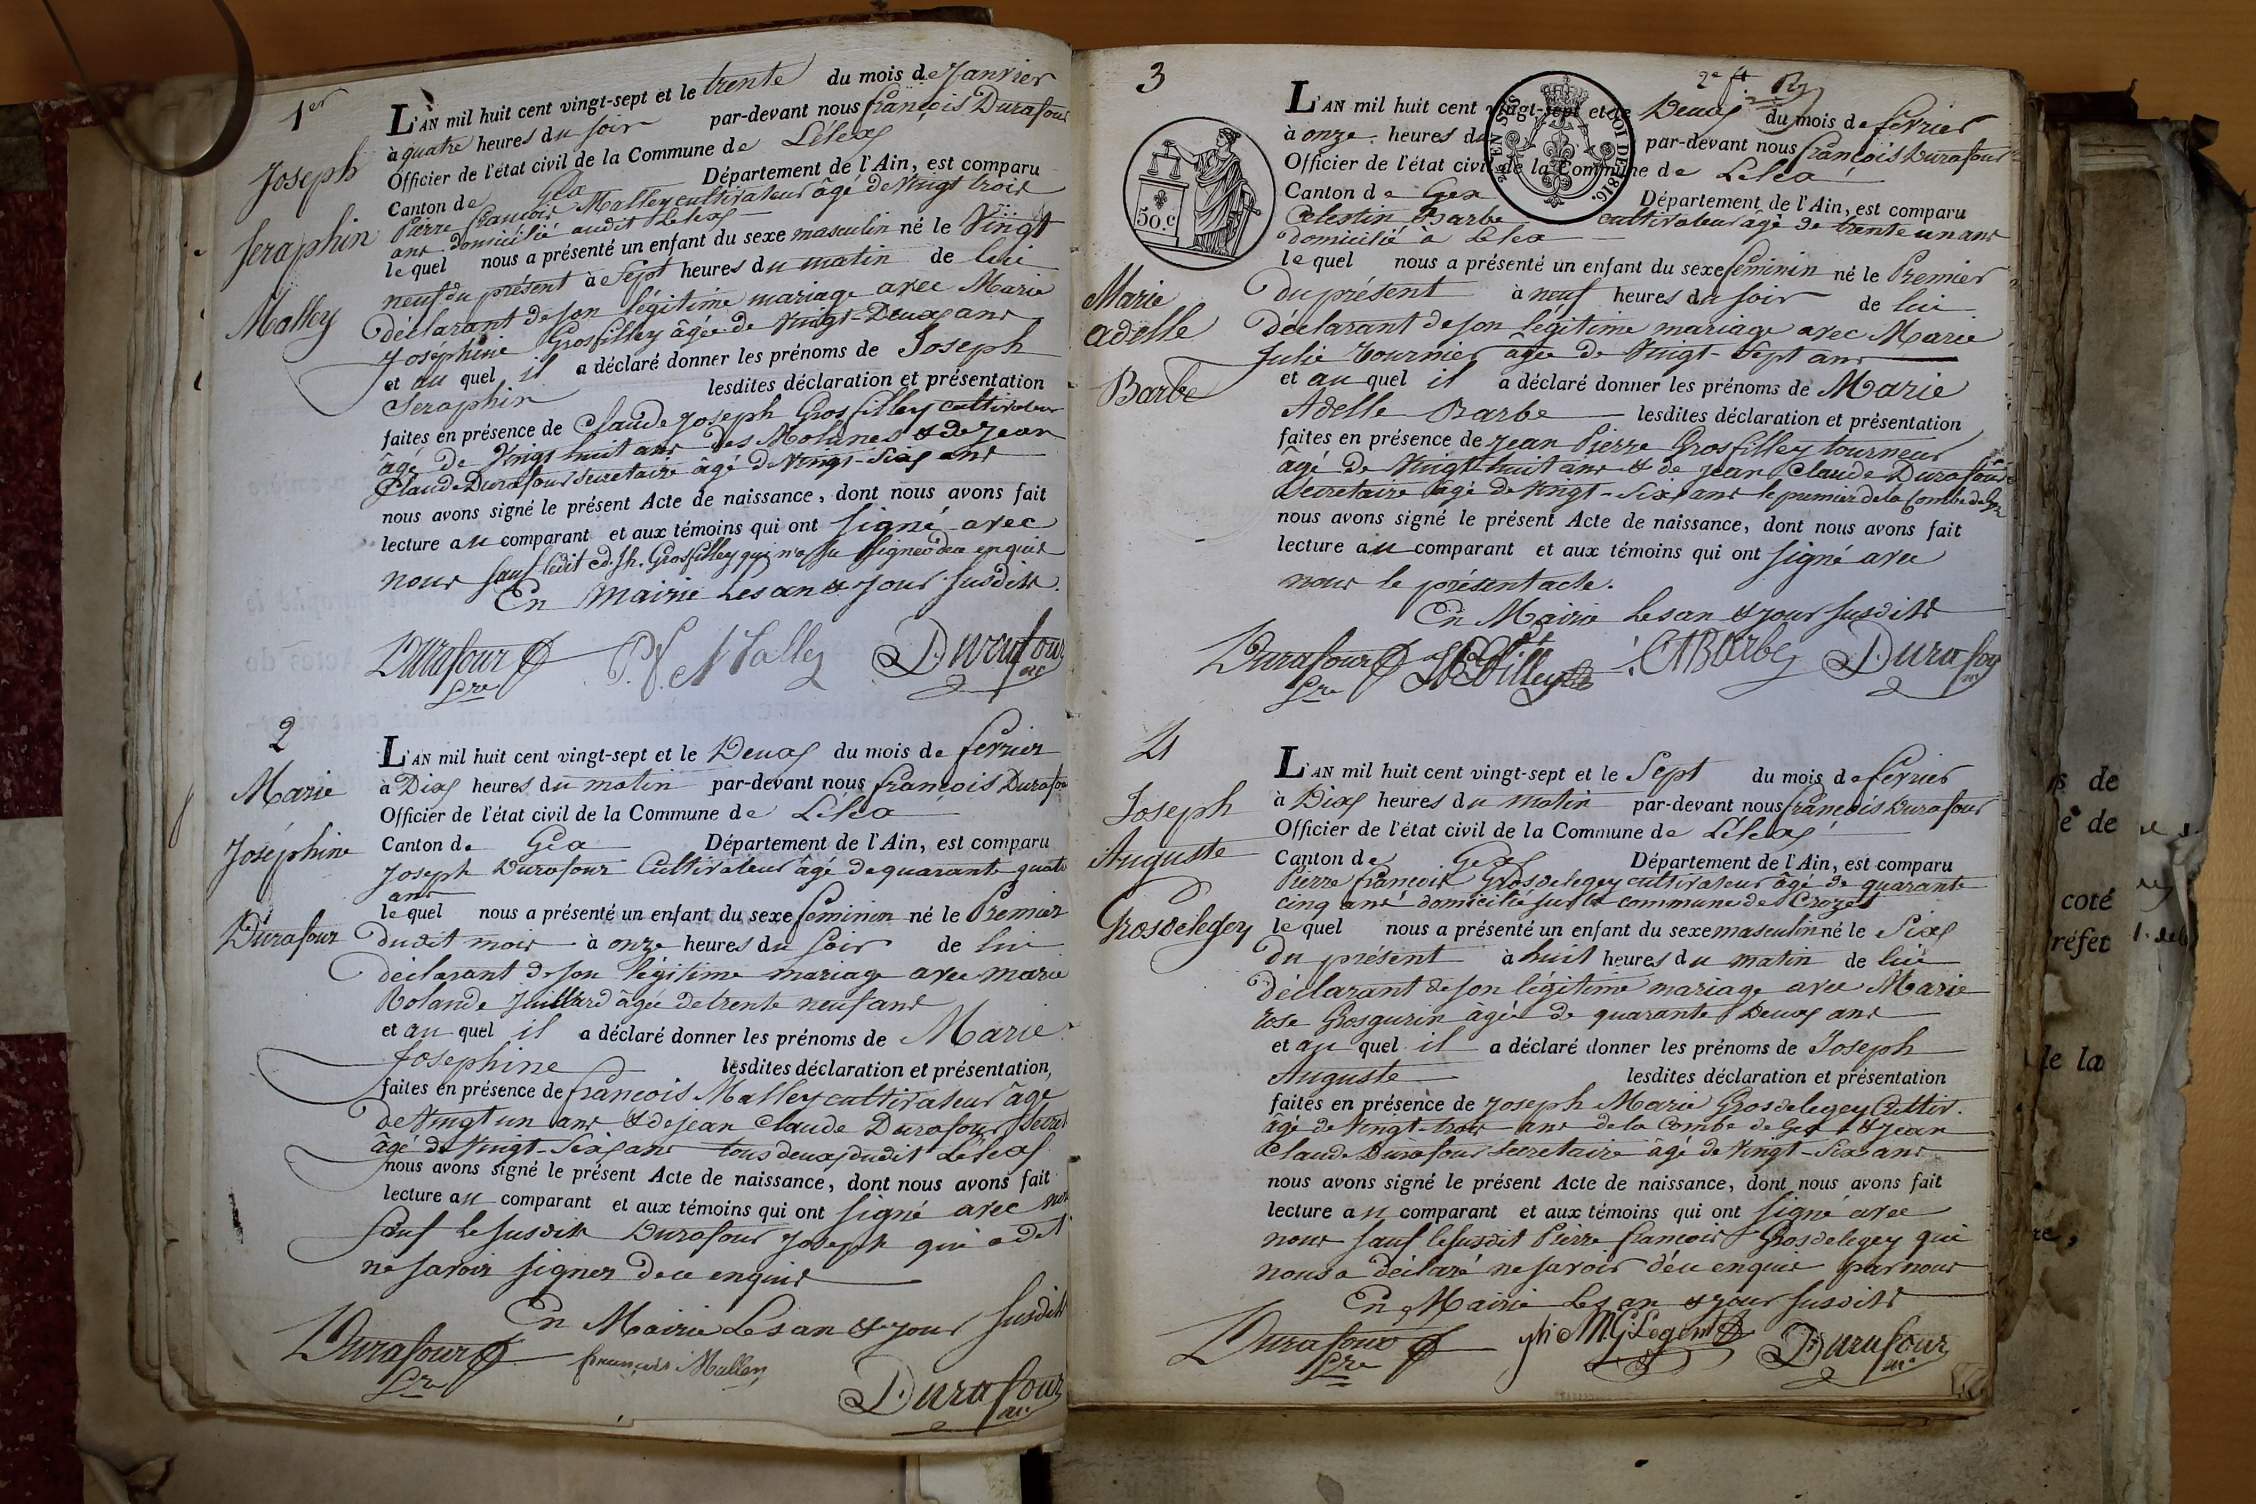 1er
Joseph
Seraphin
Malley
L'AN mil huit cent vingt-sept et le trente du mois de Janvier
à quatre heures du soir par-devant nous françois Durafour
Officier de l'état civil de la Commune de Lélex
Canton de Gex Département de l'Ain, est comparu
Pierre françois Malley cultivateur âgé de Vingt trois
ans domicilié audit Lélex
le quel nous a présenté un enfant du sexe masculin né le Vingt
neuf du présent à Sept heures du matin de lui
déclarant de son légitime mariage avec Marie
Joséphine Grosfilley âgée de Vingt-Deux ans
et au quel il a déclaré donner les prénoms de Joseph
Seraphin lesdites déclaration et présentation
faites en présence de Claude Joseph Grosfilley cultivateur
âgé de Vingt huit ans des Molunes & de Jean
Claude Durafour secretaire âgé de Vingt-Six ans
nous avons signé le présent Acte de naissance, dont nous avons fait
lecture au comparant et aux témoins qui ont signé avec
nous sauf ledit Cd. Jh. Grosfilley qui n'a su signer de ce enquis
En Mairie Les an & jour susdits.
Durafour P. f. Malley Durafour
Sre
2
Marie
Joséphine
Durafour
L'AN mil huit cent vingt-sept et le Deux du mois de fevrier
à Dix heures du matin par-devant nous françois Durafour
Officier de l'état civil de la Commune de Léléx
Canton de Gex Département de l'Ain, est comparu
Joseph Durafour Cultivateur âgé de quarante quatre
ans
le quel nous a présenté un enfant du sexe féminin né le Premier
dudit mois à onze heures du soir de lui
déclarant de son légitime mariage avec marie
Rolande Juillard âgée de trente neuf ans
et au quel il a déclaré donner les prénoms de Marie
Josephine lesdites déclaration et présentation,
faites en présence de françois Malley cultivateur âgé
de Vingt un ans & de jean Claude Durafour Secret
âgé de Vingt-Six ans tous deux dudit Lélex
nous avons signé le présent Acte de naissance, dont nous avons fait
lecture au comparant et aux témoins qui ont signé avec nous
sauf le susdit Durafour Joseph qui a dit
ne savoir signer de ce enquis
En Mairie Les an & jour susdits
Durafour françois Malley Durafour
Sre
3
EN SUS
LOI DE 1816.
50.c
Marie
adelle
Barbe
L'AN mil huit cent vingt-sept et le Deux du mois de fevrier
à onze heures du par-devant nous françois Durafour
Officier de l'état civil de la Commune de Léléx
Canton de Gex Département de l'Ain, est comparu
Celestin Barbe cultivateur âgé de trente un ans
domicilié à Lelex
le quel nous a présenté un enfant du sexe féminin né le Premier
du présent à neuf heures du soir de lui
déclarant de son légitime mariage avec Marie
Julie Tournier âgée de Vingt-Sept ans
et au quel il a déclaré donner les prénoms de Marie
Adelle Barbe lesdites déclaration et présentation
faites en présence de jean Pierre Grosfilley tourneur
âgé de Vingt huit ans & de jean Claude Durafour
Secretaire âgé de Vingt-Six ans le premier de la Combe de Gex
nous avons signé le présent Acte de naissance, dont nous avons fait
lecture au comparant et aux témoins qui ont signé avec
nous le présent acte.
En Mairie Les an & jour susdits
Durafour Barbe Durafour
Sre
4
Joseph
Auguste
Grosdelegey
L'AN mil huit cent vingt-sept et le Sept du mois de fevrier
à Dix heures du matin par-devant nous françois Durafour
Officier de l'état civil de la Commune de Lélex
Canton de Gex Département de l'Ain, est comparu
Pierre françois Grosdelegey cultivateur âgé de quarante
cinq ans domicilié sur la commune de Crozet
le quel nous a présenté un enfant du sexe masculin né le Six
du présent à huit heures du matin de lui
déclarant de son légitime mariage avec Marie
rose Grosgurin âgée de quarante Deux ans
et au quel il a déclaré donner les prénoms de Joseph
Auguste lesdites déclaration et présentation
faites en présence de Joseph Marie Grosdelegey Cultiv.
âgé de Vingt-trois ans de la Combe de Gex & jean
Claude Durafour secretaire âgé de Vingt-Six ans
nous avons signé le présent Acte de naissance, dont nous avons fait
lecture au comparant et aux témoins qui ont signé avec
nous sauf le susdit Pierre françois Grosdelegey qui
nous a déclaré ne savoir de ce enquis par nous
En Mairie Les an & jour susdits
Durafour Durafour
Sre
de
de
coté
réfet
de la